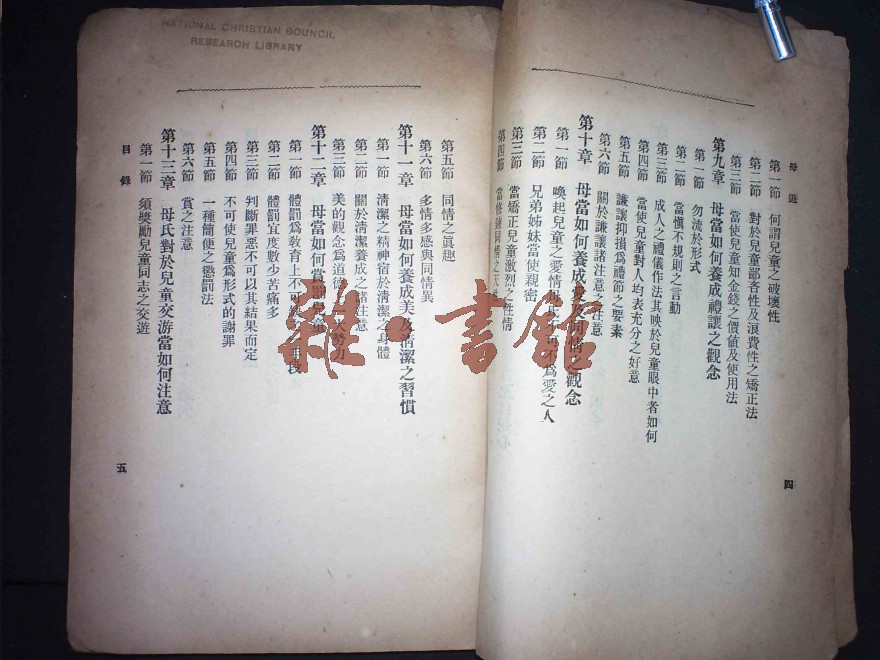 母道
第一節 何謂兒童之破壞性
第二節 對於兒童鄙吝性及浪費性之矯正法
第三節 當使兒童知金錢之價值及使用法
第九章 母當如何養成禮讓之觀念
第一節 勿流於形式
第二節 當愼不規則之言動
第三節 成人之禮儀作法其映於兒童眼中者如何
第四節 當使兒童對人均表充分之好意
第五節 謙讓抑損爲禮節之要素
第六節 關於謙讓諸注意
第十章 母當如何養成愛及同情之觀念
第一節 喚起兒童之愛情母氏不可不爲愛之人
第二節 兄弟姊妹當使親密
第三節 當矯正兒童激烈之性情
第四節 當修練同情之天
四
NATIONAL CHRISTIAN COUNCIL
RESEARCH LIBRARY
第五節 同情之眞趣
第六節 多情多感與同情異
第十一章 母當如何養成美及清潔之習慣
第一節 清潔之精神宿於清潔之身體
第二節 關於清潔養成之諸注意
第三節 美的觀念爲道德 大勢力
第十二章 母當如何賞罰兒童
第一節 體罰爲教育上不可 手段
第二節 體罰宜度數少苦痛多
第三節 判斷罪惡不可以其結果而定
第四節 不可使兒童爲形式的謝罪
第五節 一種簡便之懲罰法
第六節 賞之注意
第十三章 母氏對於兒童交游當如何注意
第一節 須獎勵兒童同志之交遊
目錄
五
雜·書館